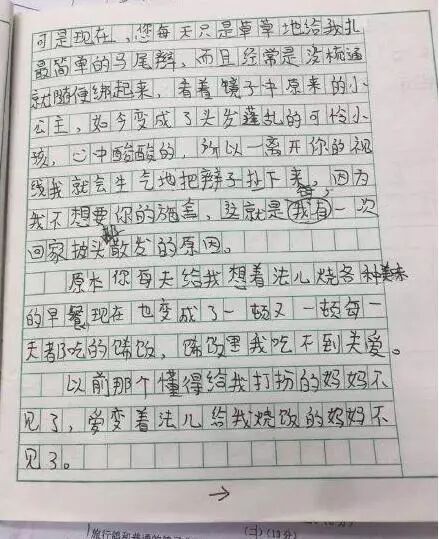 可是现在，您每天只是草草地给我扎
最简单的马尾辫，而且经常是没梳通
就随便绑起来，看着镜子中原来的小
公主，如今变成了头发蓬乱的可怜小
孩，心中酸酸的，所以一离开你的视
线我就会生气地把辫子扯下来，因为
我不想要你的施舍，这就是我有一次
回家披头散发的原因。
原本你每天给我想着法儿烧各种美味
的早餐现在也变成了一顿又一顿每一
天都吃的稀饭，稀饭里我吃不到关爱。
以前那个懂得给我打扮的妈妈不
见了，爱变着法儿给我烧饭的妈妈不
见了。
→
旅行
(10分)